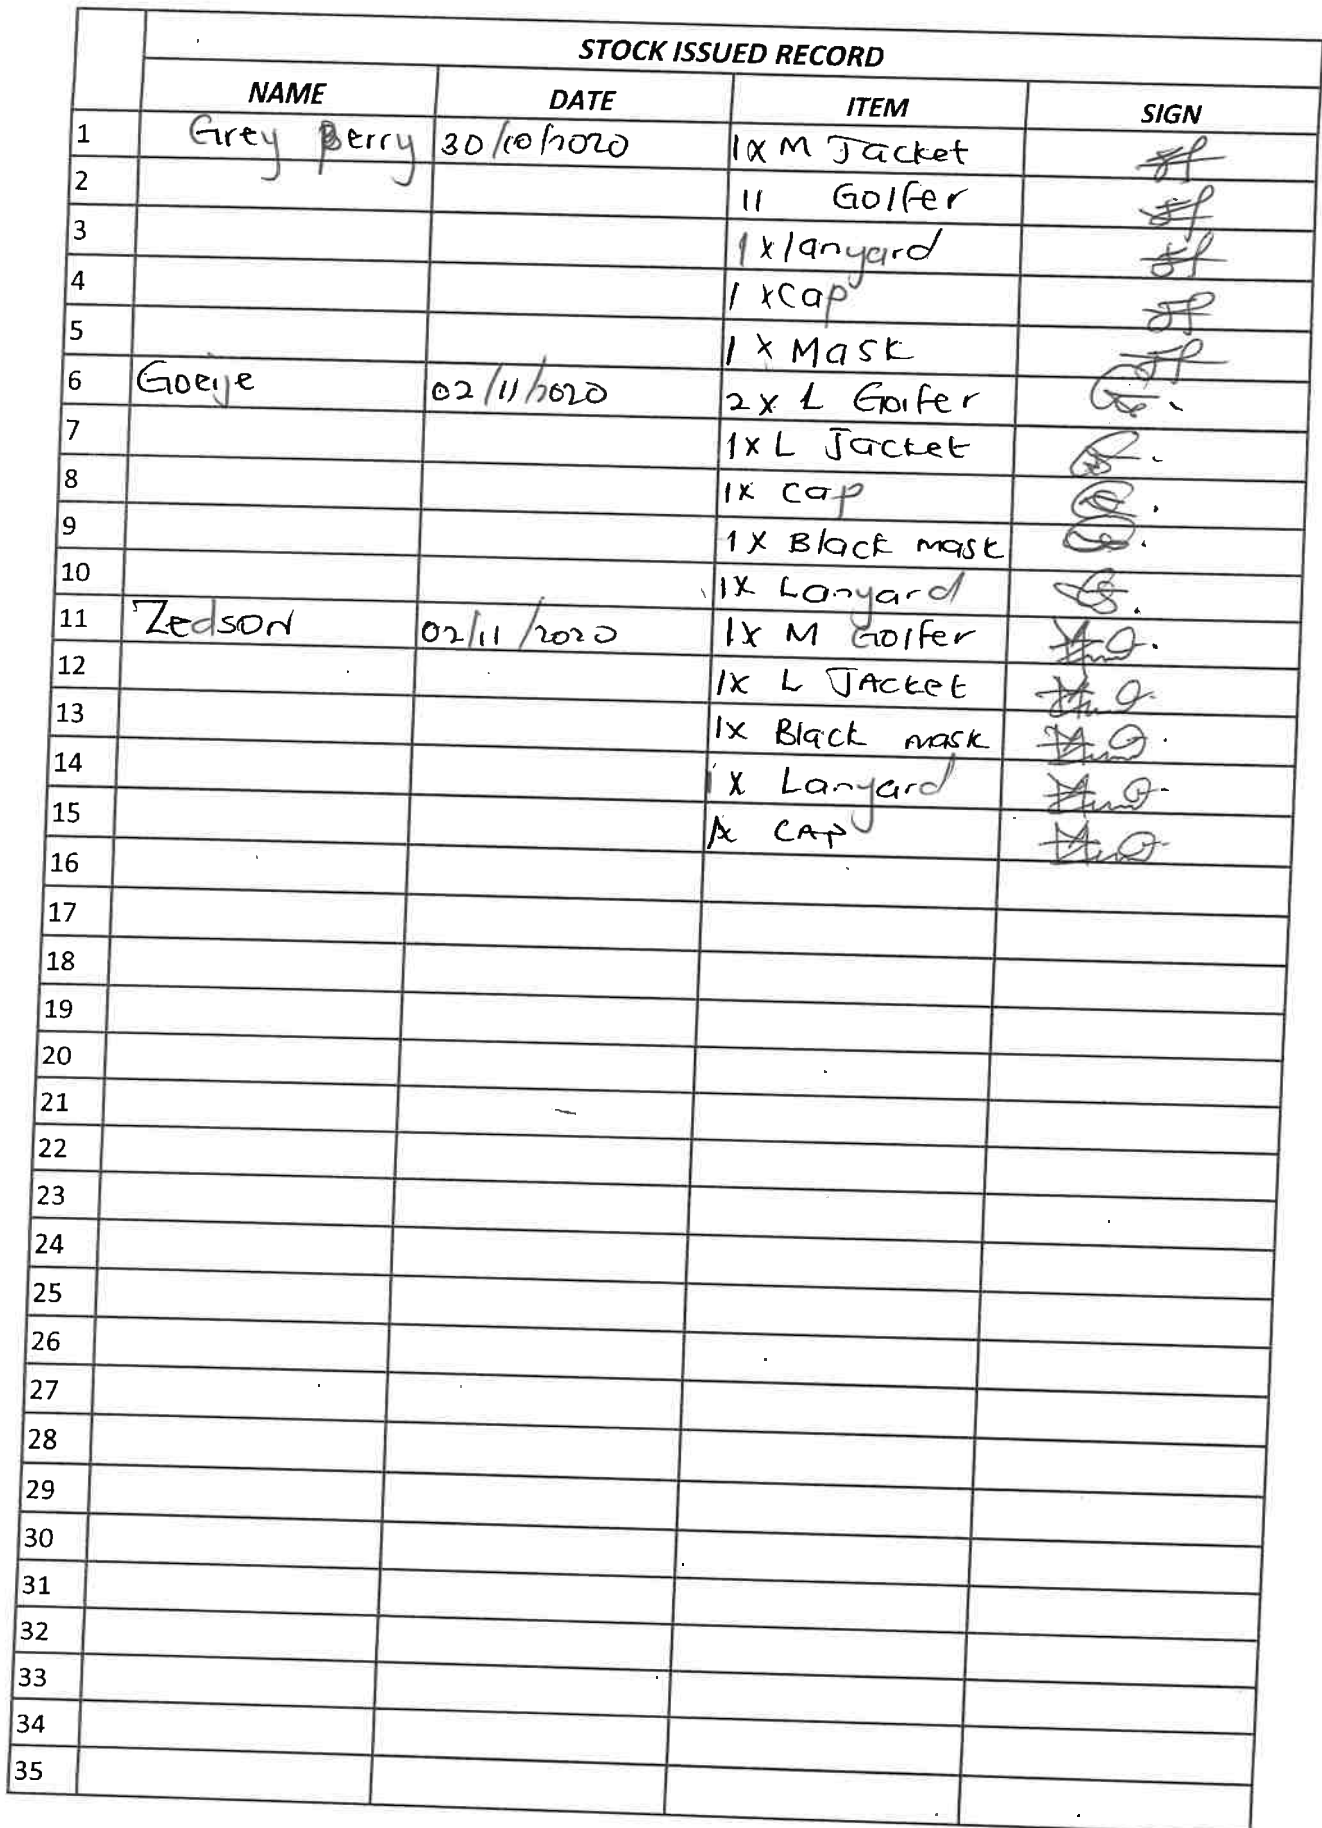 STOCK ISSUED RECORD
NAME DATE ITEM SIGN
1 Grey Berry 30/10/2020 1x M Jacket
2 11 Golfer
3 1 x lanyard
4 1 x cap
5 1 x Mask
6 Goeije 02/11/2020 2 x L Golfer
7 1x L Jacket
8 1x cap
9 1 x Black mask
10 1x Lanyard
11 Zedson 02/11/2020 1x M Golfer
12 1x L JAcket
13 1x Black mask
14 1 x Lanyard
15 1x CAP
16
17
18
19
20
21
22
23
24
25
26
27
28
29
30
31
32
33
34
35